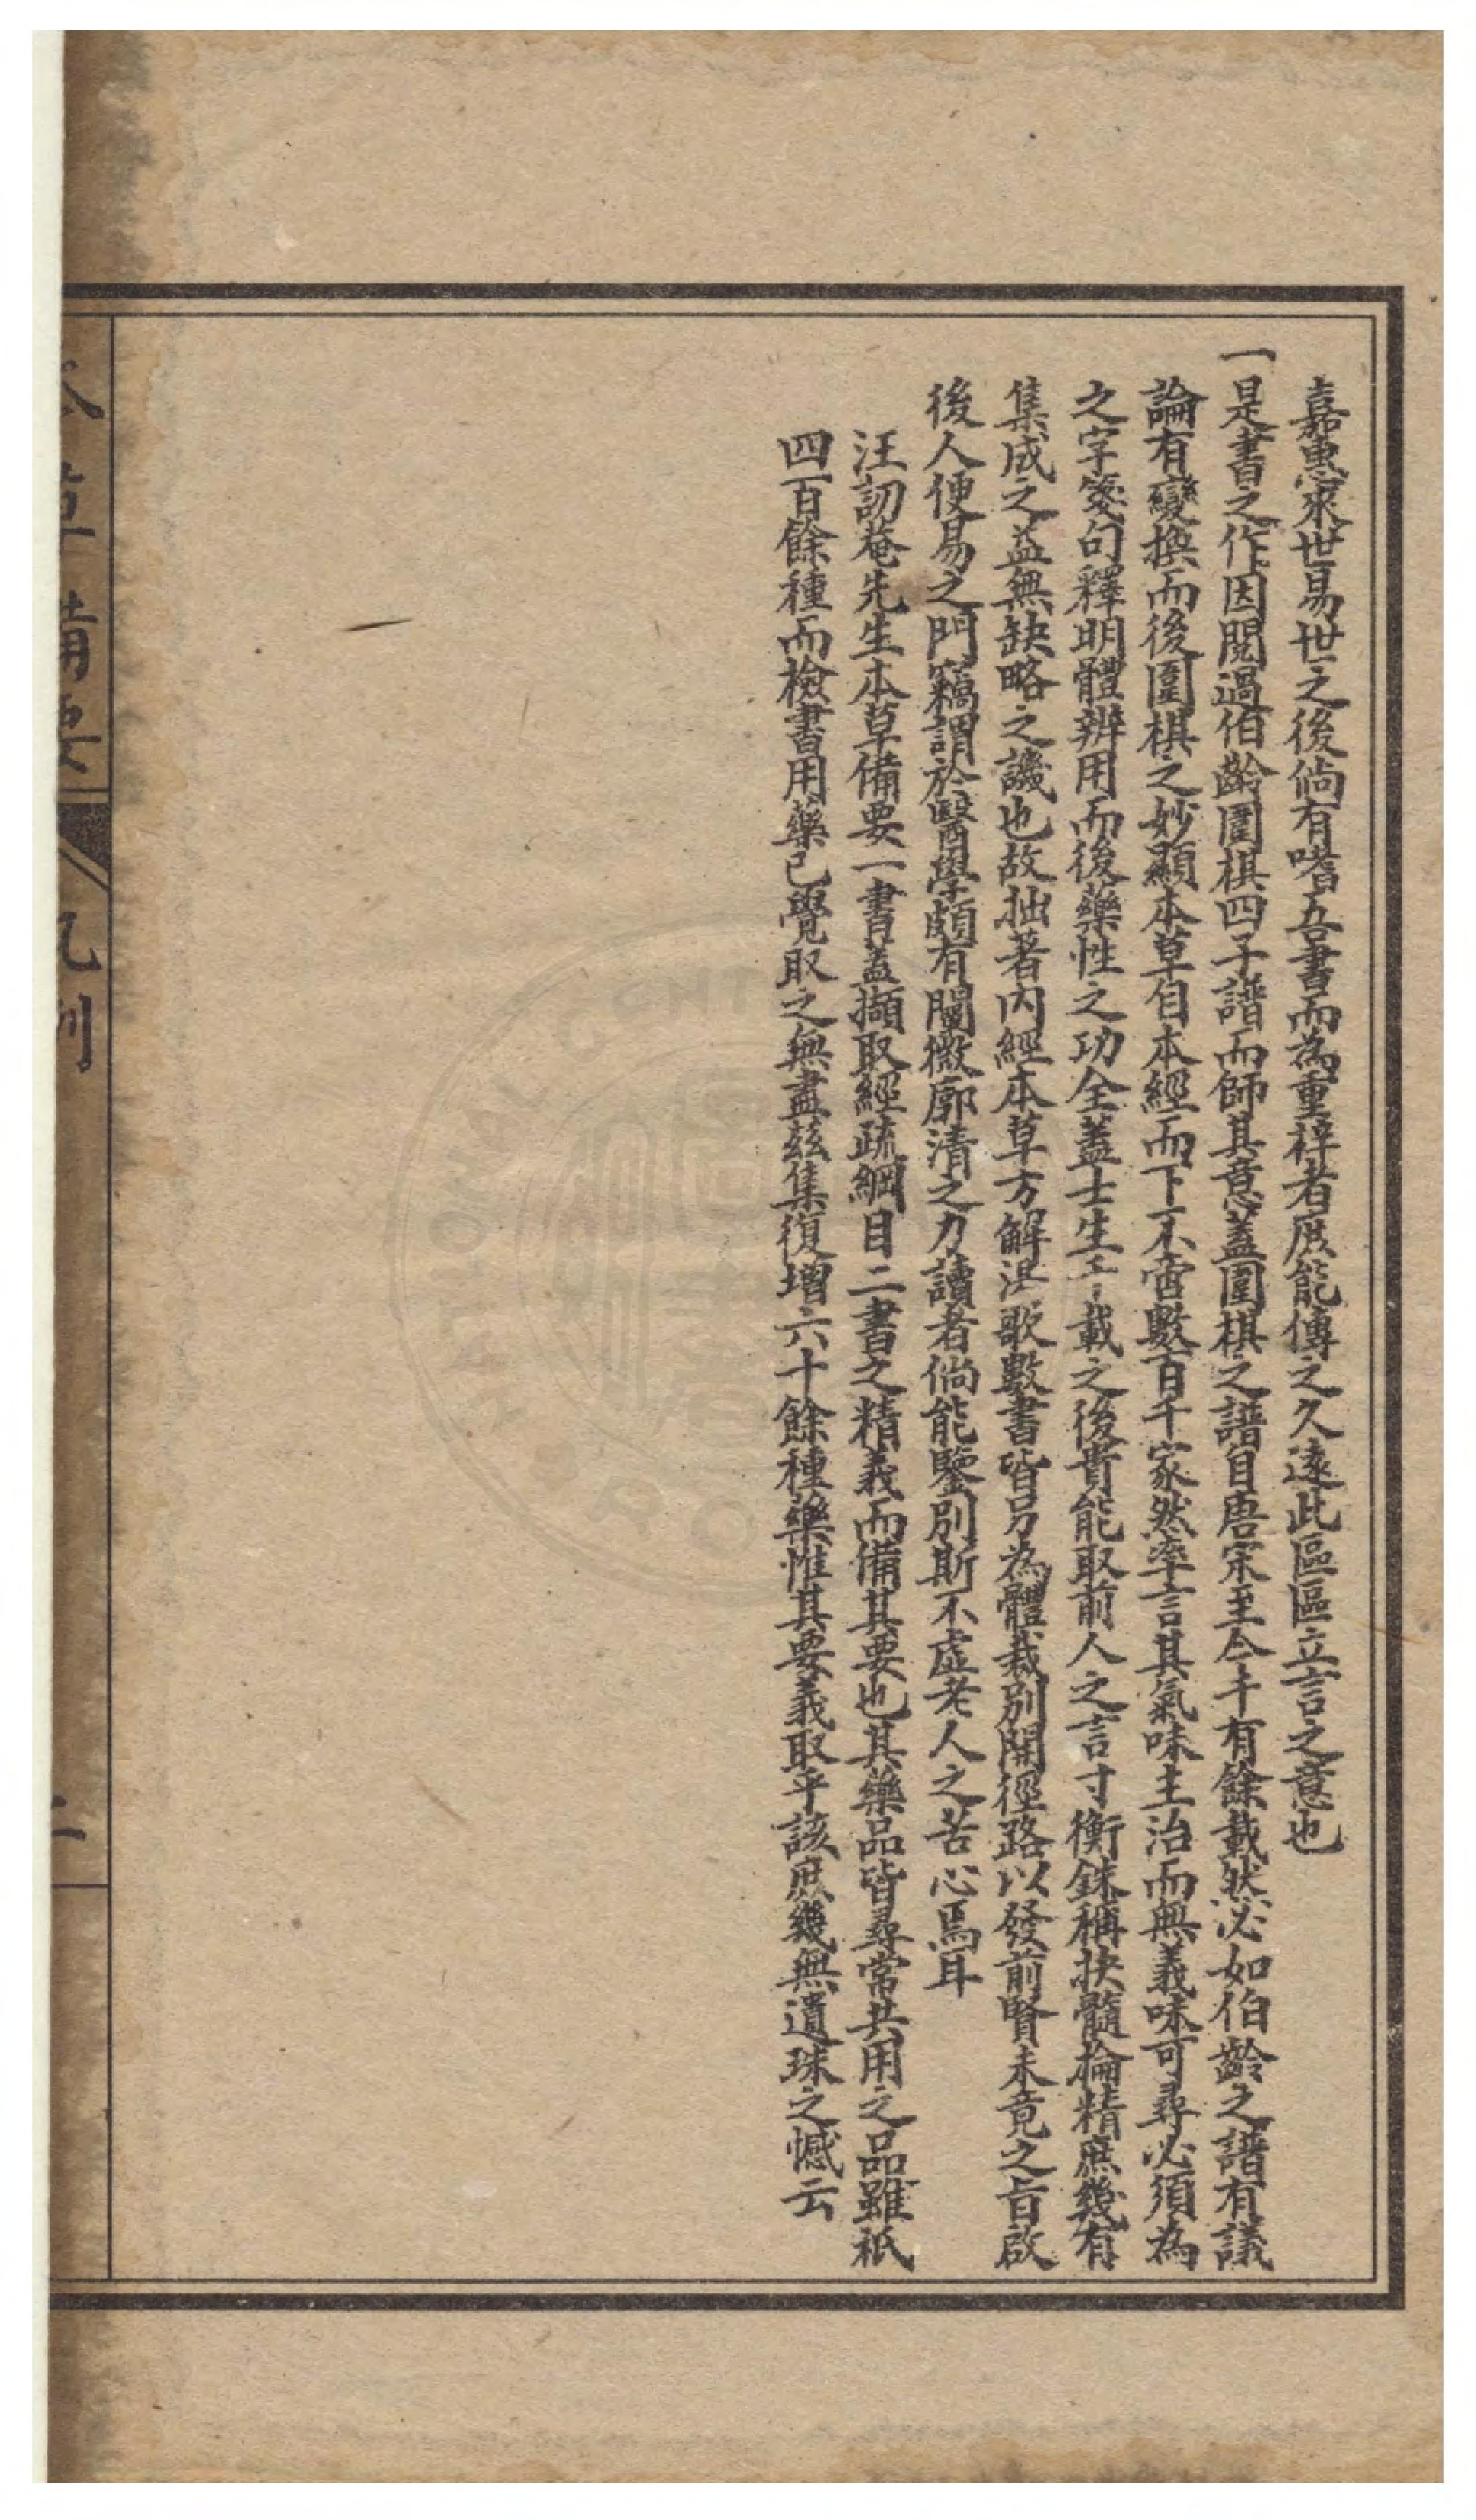 嘉惠來世易世之後倘有嗜吾書而為重梓者庶能傳之久遠此區區立言之意也
一是書之作因閱過伯齡圍棋四子譜而師其意蓋圍棋之譜自唐宋至今千有餘載然必如伯齡之譜有議
論有變換而後圍棋之妙顯本草自本經而下不啻數百千家然率言其氣味主治而無義味可尋必須為
之字箋句釋明體辨用而後藥性之功全蓋士生千載之後貴能取前人之言寸衡銖稱抉髓掄精庶幾有
集成之益無缺略之譏也故拙著內經本草方解湯歌數書皆另為體裁別開徑路以發前賢未竟之旨啟
後人便易之門竊謂於醫學頗有闡微廓清之力讀者倘能鑒別斯不虛老人之苦心焉耳
汪訒菴先生本草備要一書蓋擷取經疏綱目二書之精義而備其要也其藥品皆尋常共用之品雖祇
四百餘種而檢書用藥已覺取之無盡茲集復增六十餘種藥惟其要義取乎該庶幾無遺珠之憾云
本草備要
凡例
二